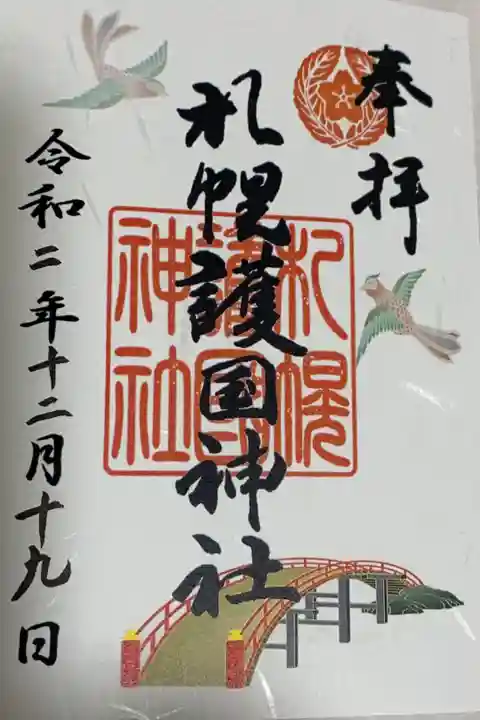 奉拝
札幌護国神社
札幌
護国
神社
令和二年十二月十九日